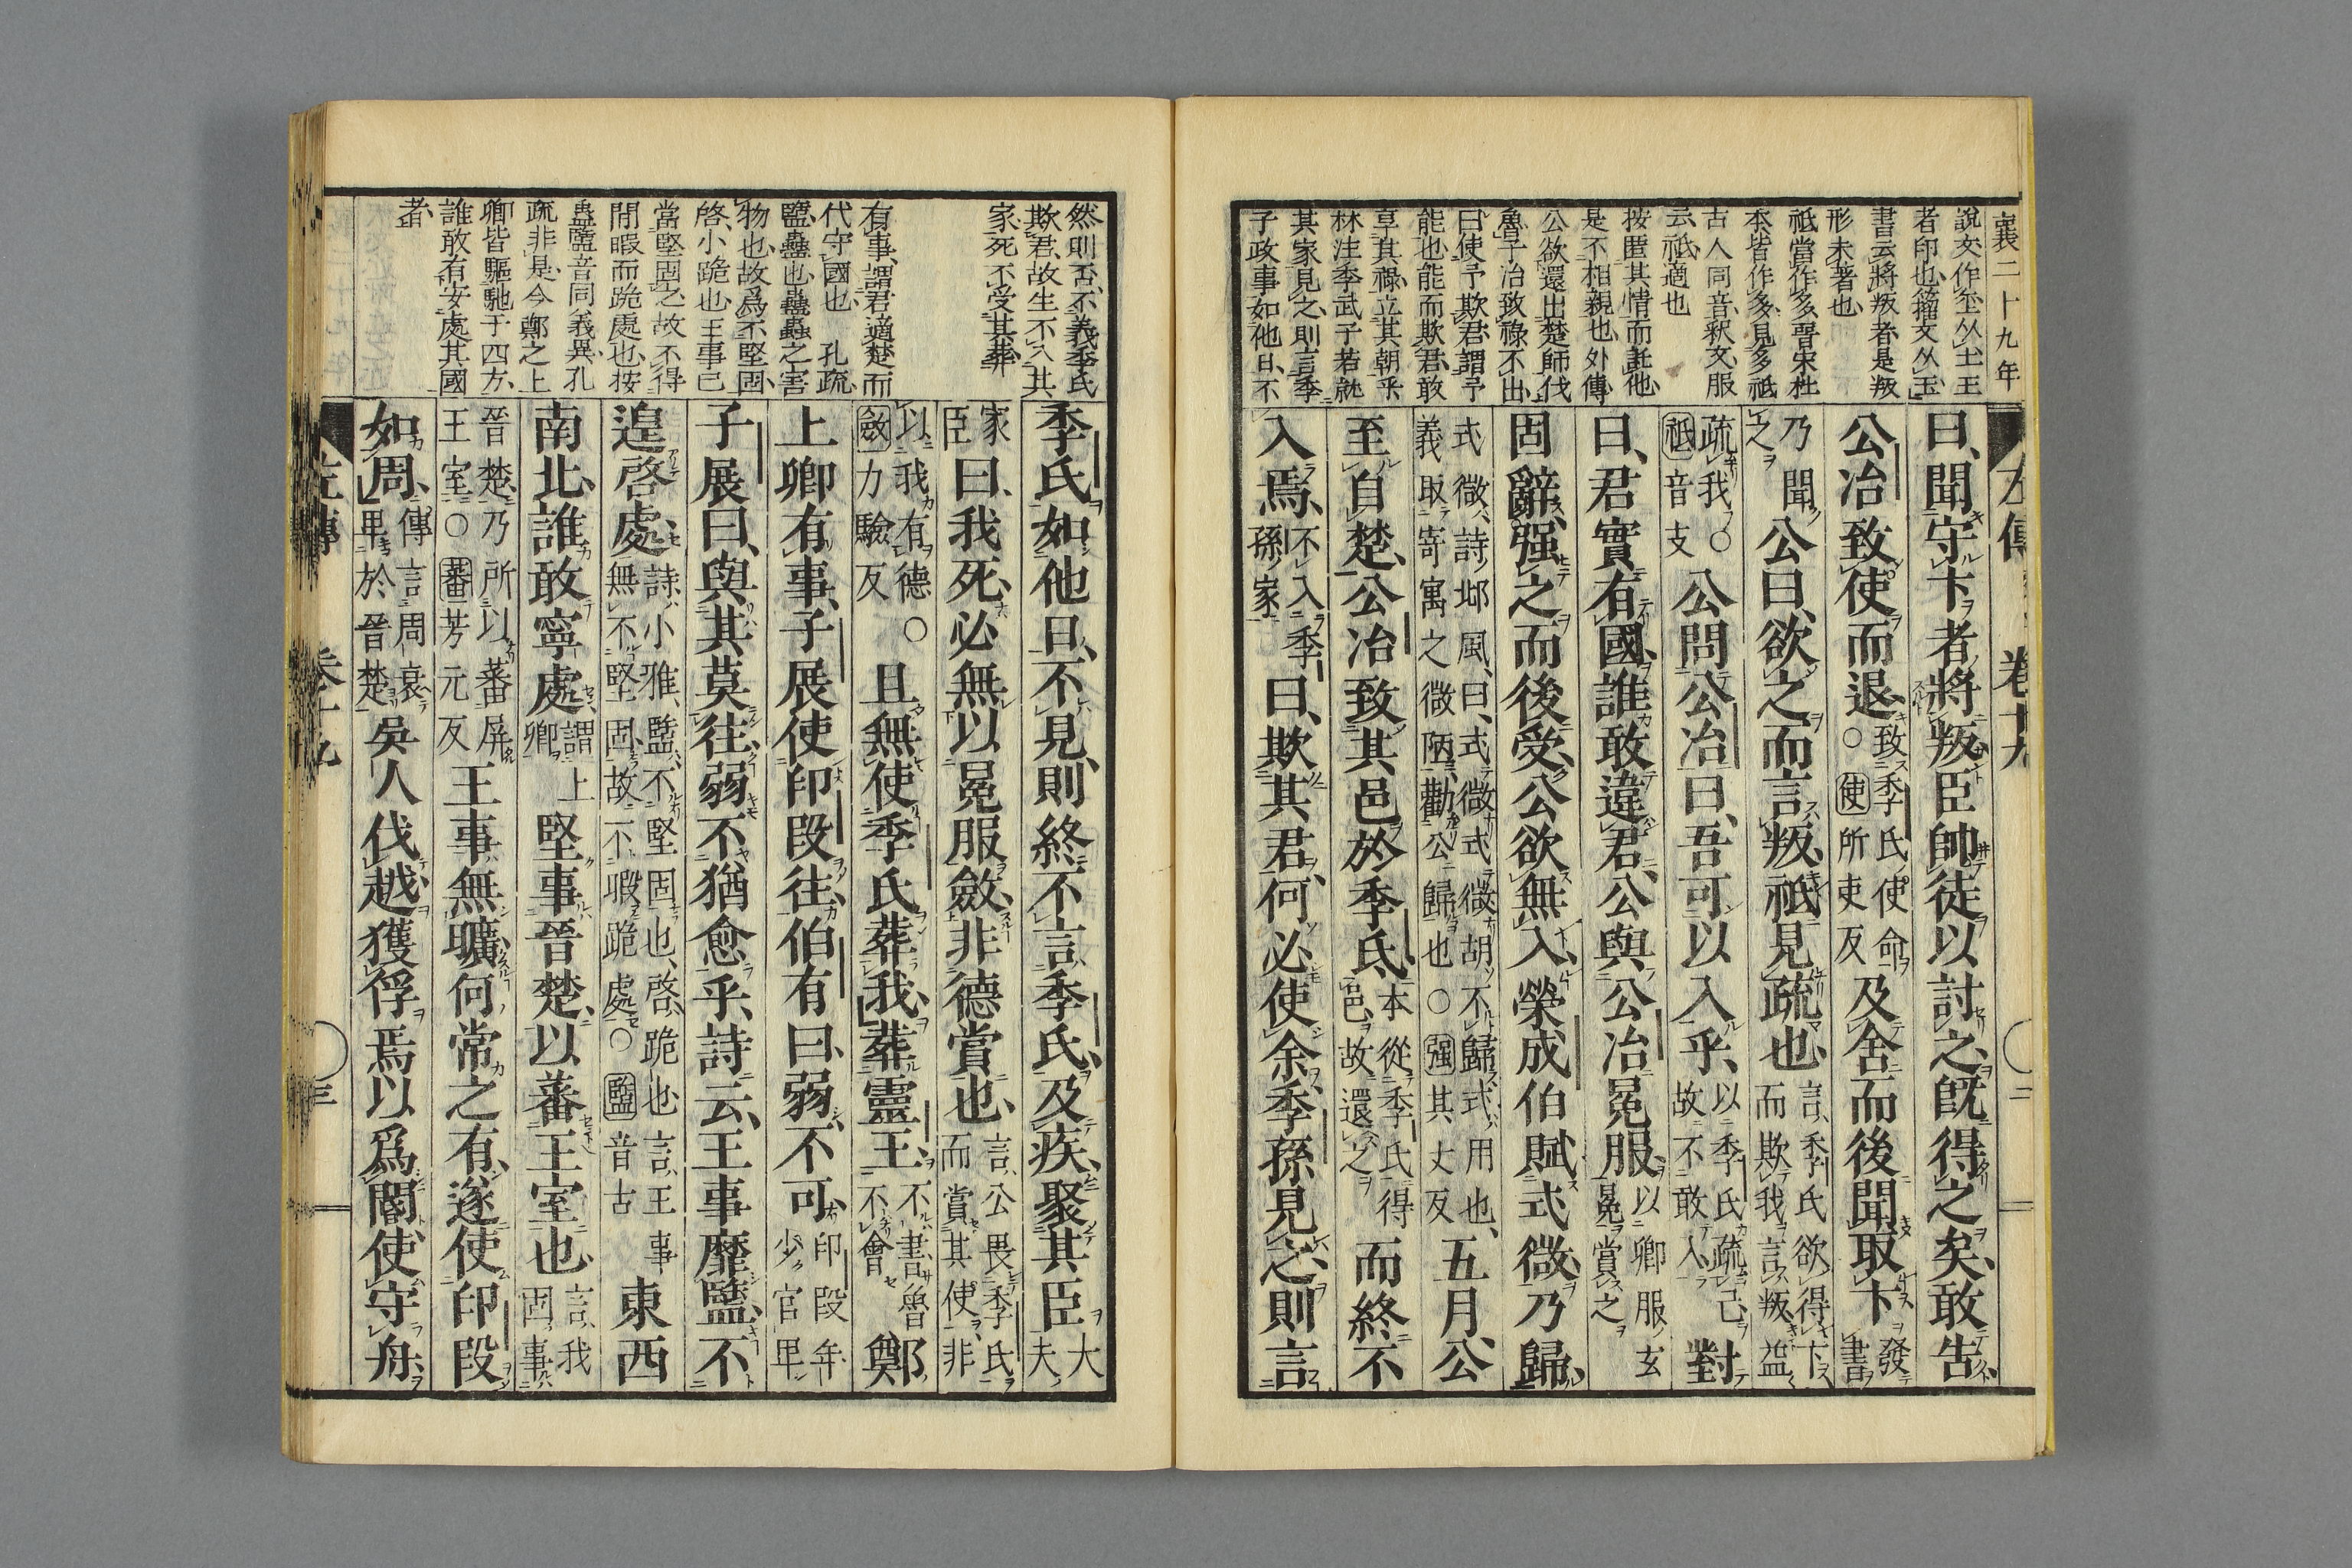 襄二十九年
說文作壐从土王
者印也籀文从玉
書云將叛者是叛
形未著也
祗當作多晋宋杜
本皆作多見多祗
古人同音釈文服
云祇適也
按匿其情而託他
是不相親也外傳
公欲還出楚師伐
魯子冶致祿不出
曰使予欺君謂予
能也能而欺君敢
享其祿立其朝乎
林注季武子若就
其家見之則言季
子政事如他日不
左傳 卷十九 二
曰聞守卞者將叛臣帥徒以討之既得之矣敢告
公冶致使而退○致季氏使命使所吏反及舍而後聞取卞發書
乃聞之公曰欲之而言叛祗見疏也言季氏欲得卞而欺我言叛益
疏我○祗音支公問公冶曰吾可以入乎以季氏疏己故不敢入對
曰君實有國誰敢違君公與公冶冕服以卿服玄冕賞之
固辭强之而後受公欲無入榮成伯賦式微乃歸
式微詩邶風曰式微式微胡不歸式用也義取寄寓之微陋勸公歸也○强其丈反五月公
至自楚公冶致其邑於季氏本從季氏得邑故還之而終不
入焉不入季孫家曰欺其君何必使余季孫見之則言
然則否不義季氏
欺君故生不入其
家死不受其葬
有事謂君適楚而
代守國也 孔疏
盬蠱也蠱蟲之害
物也故爲不堅固
啓小跪也王事已
當堅固之故不得
閒暇而跪處也按
蠱盬音同義異孔
疏非是今鄭之上
卿皆驅馳于四方
誰敢有安處其國
者
季氏如他日不見則終不言季氏及疾聚其臣大夫
家臣曰我死必無以冕服斂非德賞也言公畏季氏而賞其使非
以我有德○斂力驗反且無使季氏葬我葬靈王不書魯不會鄭
上卿有事子展使印段往伯有曰弱不可印段年少官卑
子展曰與其莫往弱不猶愈乎詩云王事靡盬不
遑啓處詩小雅盬不堅固也啓跪也言王事無不堅固故不暇跪處○盬音古東西
南北誰敢寧處謂上卿堅事晉楚以蕃王室也言我固事
晉楚乃所以蕃屏王室○蕃芳元反王事無曠何常之有遂使印段
如周傳言周衰卑於晉楚吳人伐越獲俘焉以爲閽使守舟
左傳 卷十九 三